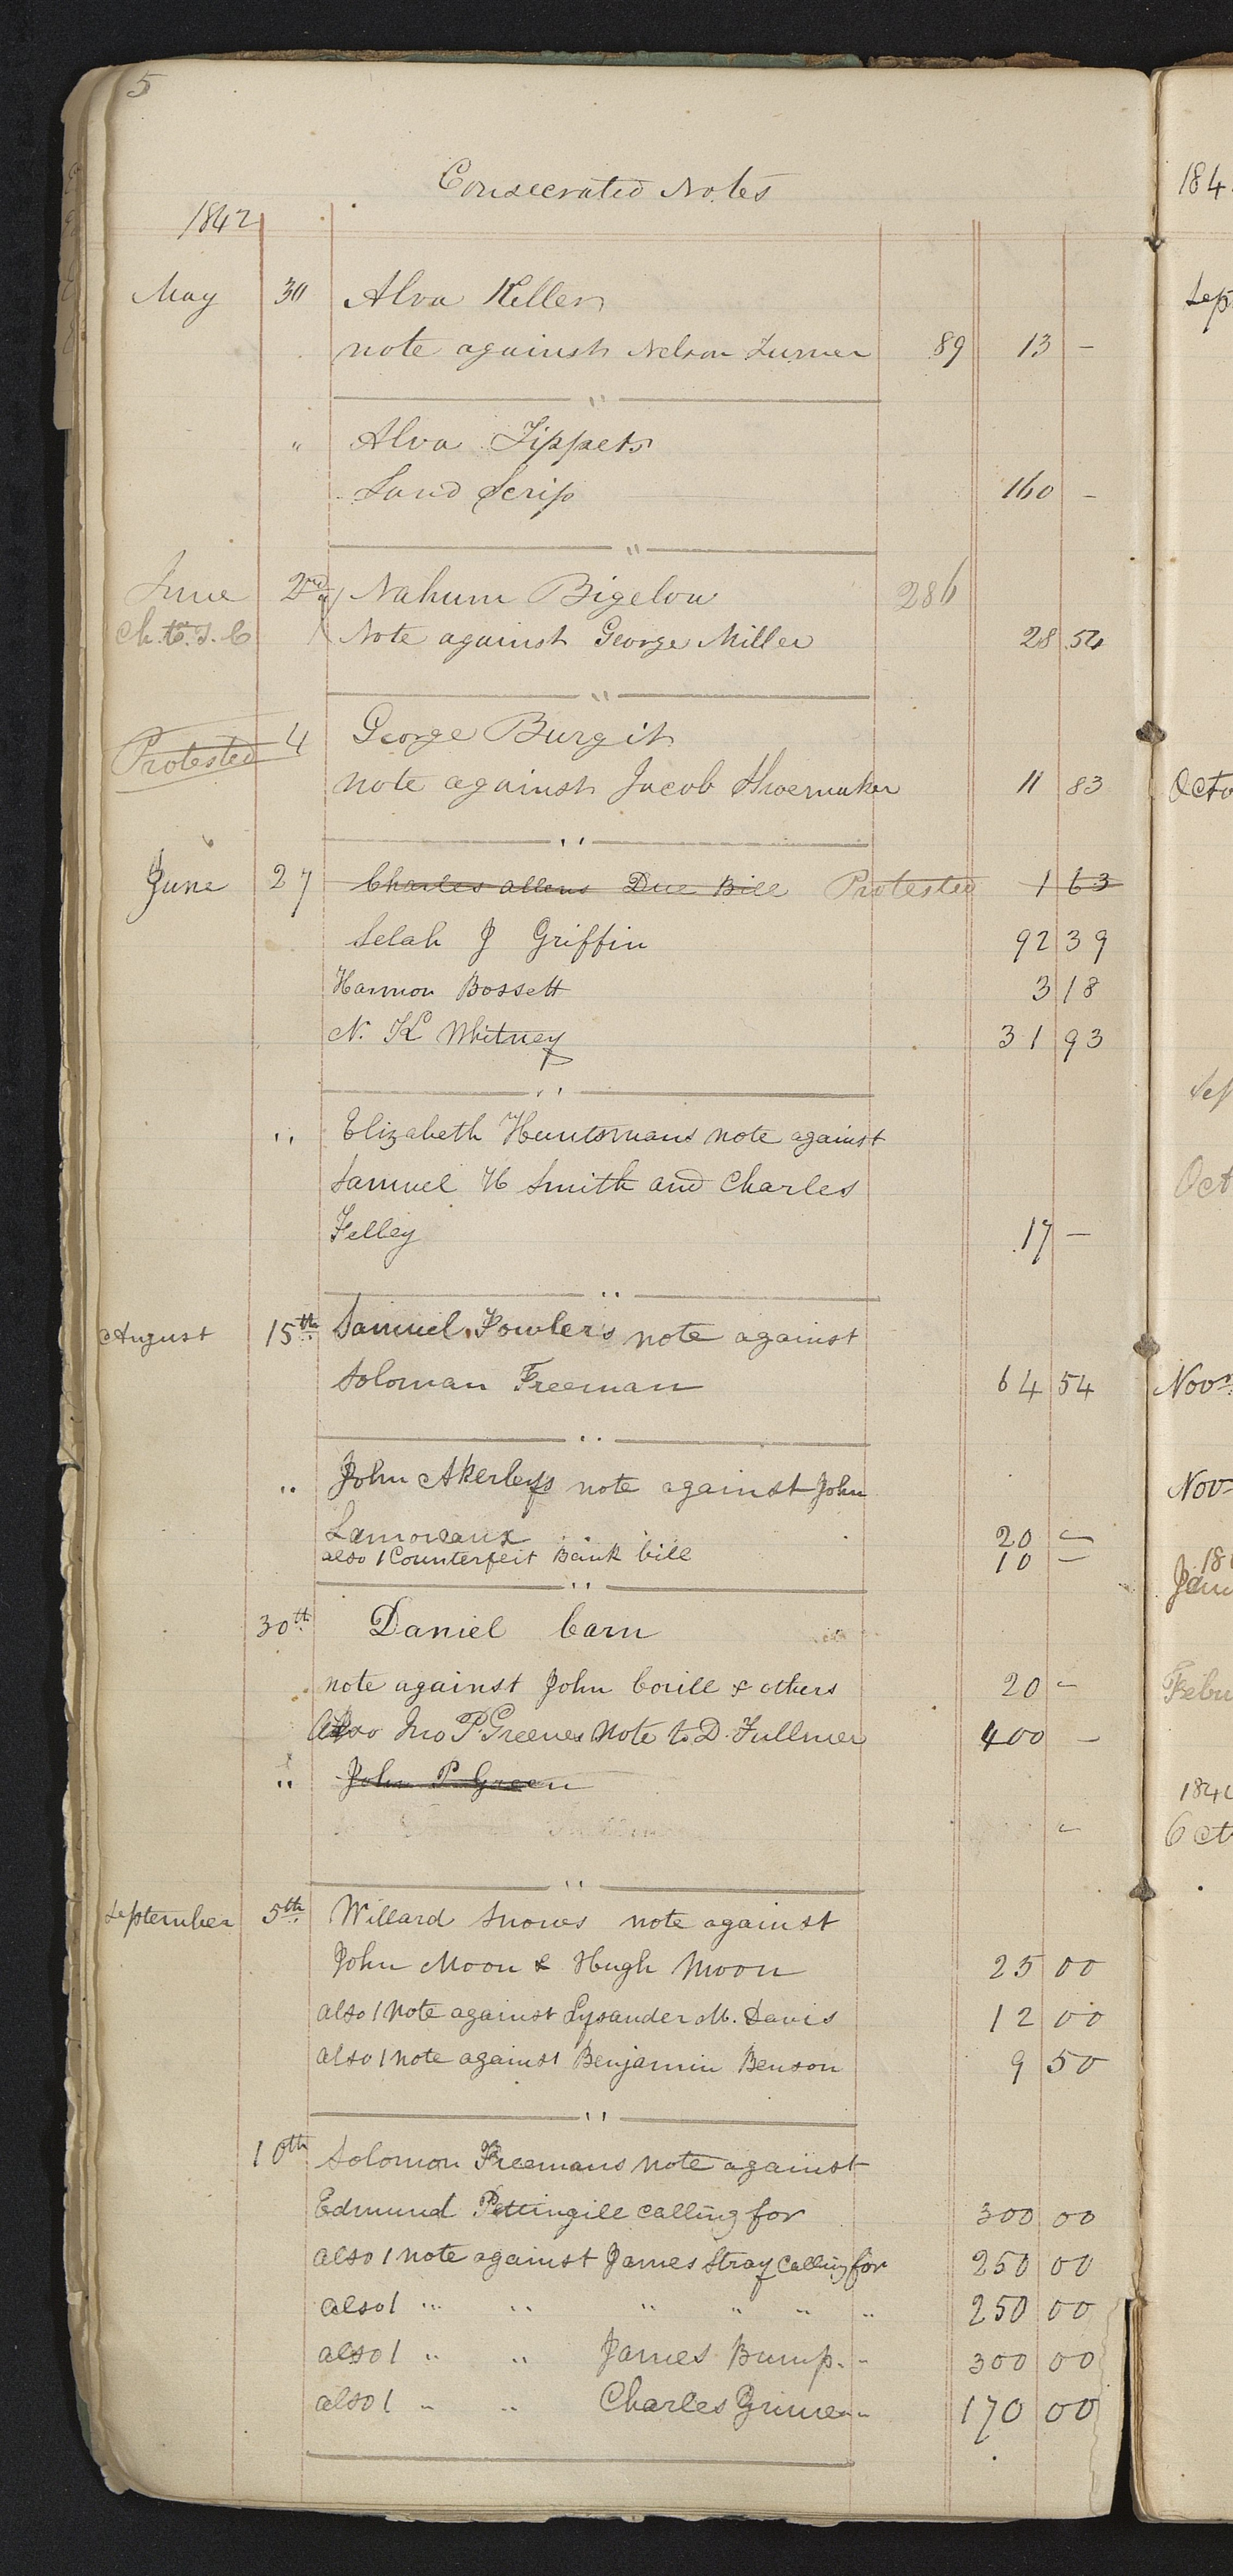 5
Consecrated Notes
1842
May 30 Alva Keller
note against Nelson Turner 89 13 -
"
" Alva Tippets
Land Scrip 160 -
"
June 2nd Nahum Bigelow 286
Ch. to. T. C Note against George Miller 28 54
"
Protested 4 George Burgit
note against Jacob Shoemaker 11 83
"
June 27 Charles Allens Due Bill Protested 1 63
Selah J Griffin 92 39
Harmon Bossett 3 18
N. K Whitney 31 93
"
" Elizabeth Huntsmans note against
Samuel H Smith and Charles
Kelley 17 -
"
August 15th Samuel Fowler's note against
Soloman Freeman 64 54
"
" John Akerleys note against John
Lamoreaux 20 -
also 1 Counterfeit Bank bill 10 -
"
30th Daniel Carn
note against John Corill & others 20 -
Also Jno P. Greenes Note to D. Fullmer 400 -
" John P Green
-
"
September 5th Willard Snows note against
John Moon & Hugh Moon 25 00
also 1 Note against Lysander M. Davis 12 00
also 1 note against Benjamin Benson 9 50
"
10th Solomon Freemans note against
Edmund Pettingill calling for 300 00
also 1 note against James Stray calling for 250 00
also 1 " " " " " " 250 00
also 1 " " James Bump " 300 00
also 1 " " Charles Grime " 170 00
184
Sept
Octo
Sep
Oct
Novr
Nov
18
Janu
Febu
184
Oct